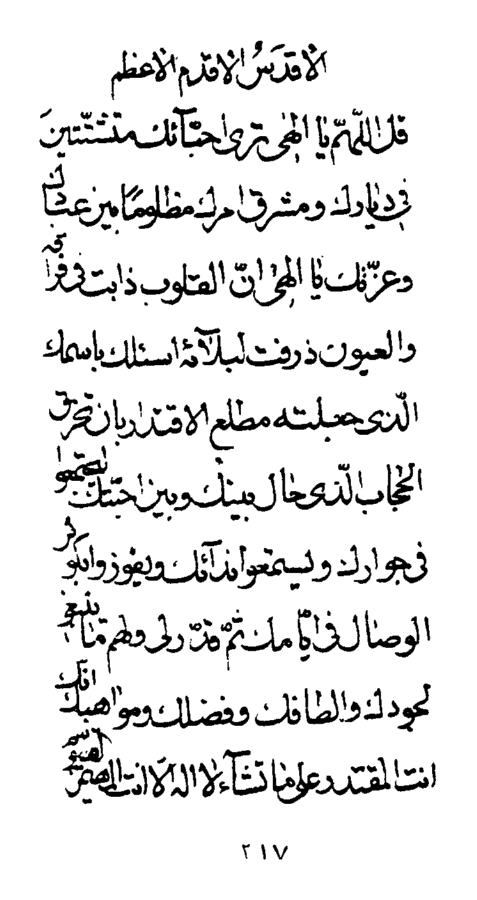 الاقدس الاقدم الاعظم
قل اللّهمّ يا الهى ترى احبّآئك متشتّتين
فى ديارك و مشرق امرك مظلوما بين عبادك
و عزّتك يا الهى انّ القلوب ذابت فى فراقه
و العيون ذرفت لبلآئه اسئلك باسمك
الّذى جعلته مطلع الاقتدار بان تخرق
الحجاب الّذى حال بينك و بين احبّتك ليجتمعوا
فى جوارك و ليستمعوا ندآئك و يفوزوا بكوثر
الوصال فى ايّامك ثمّ قدّر لى و لهم ما ينبغى
لجودك و الطافك و فضلك و مواهبك انّك
انت المقتدر على ما تشآء لا اله الّا انت المهيمن القيّوم
٢١٧